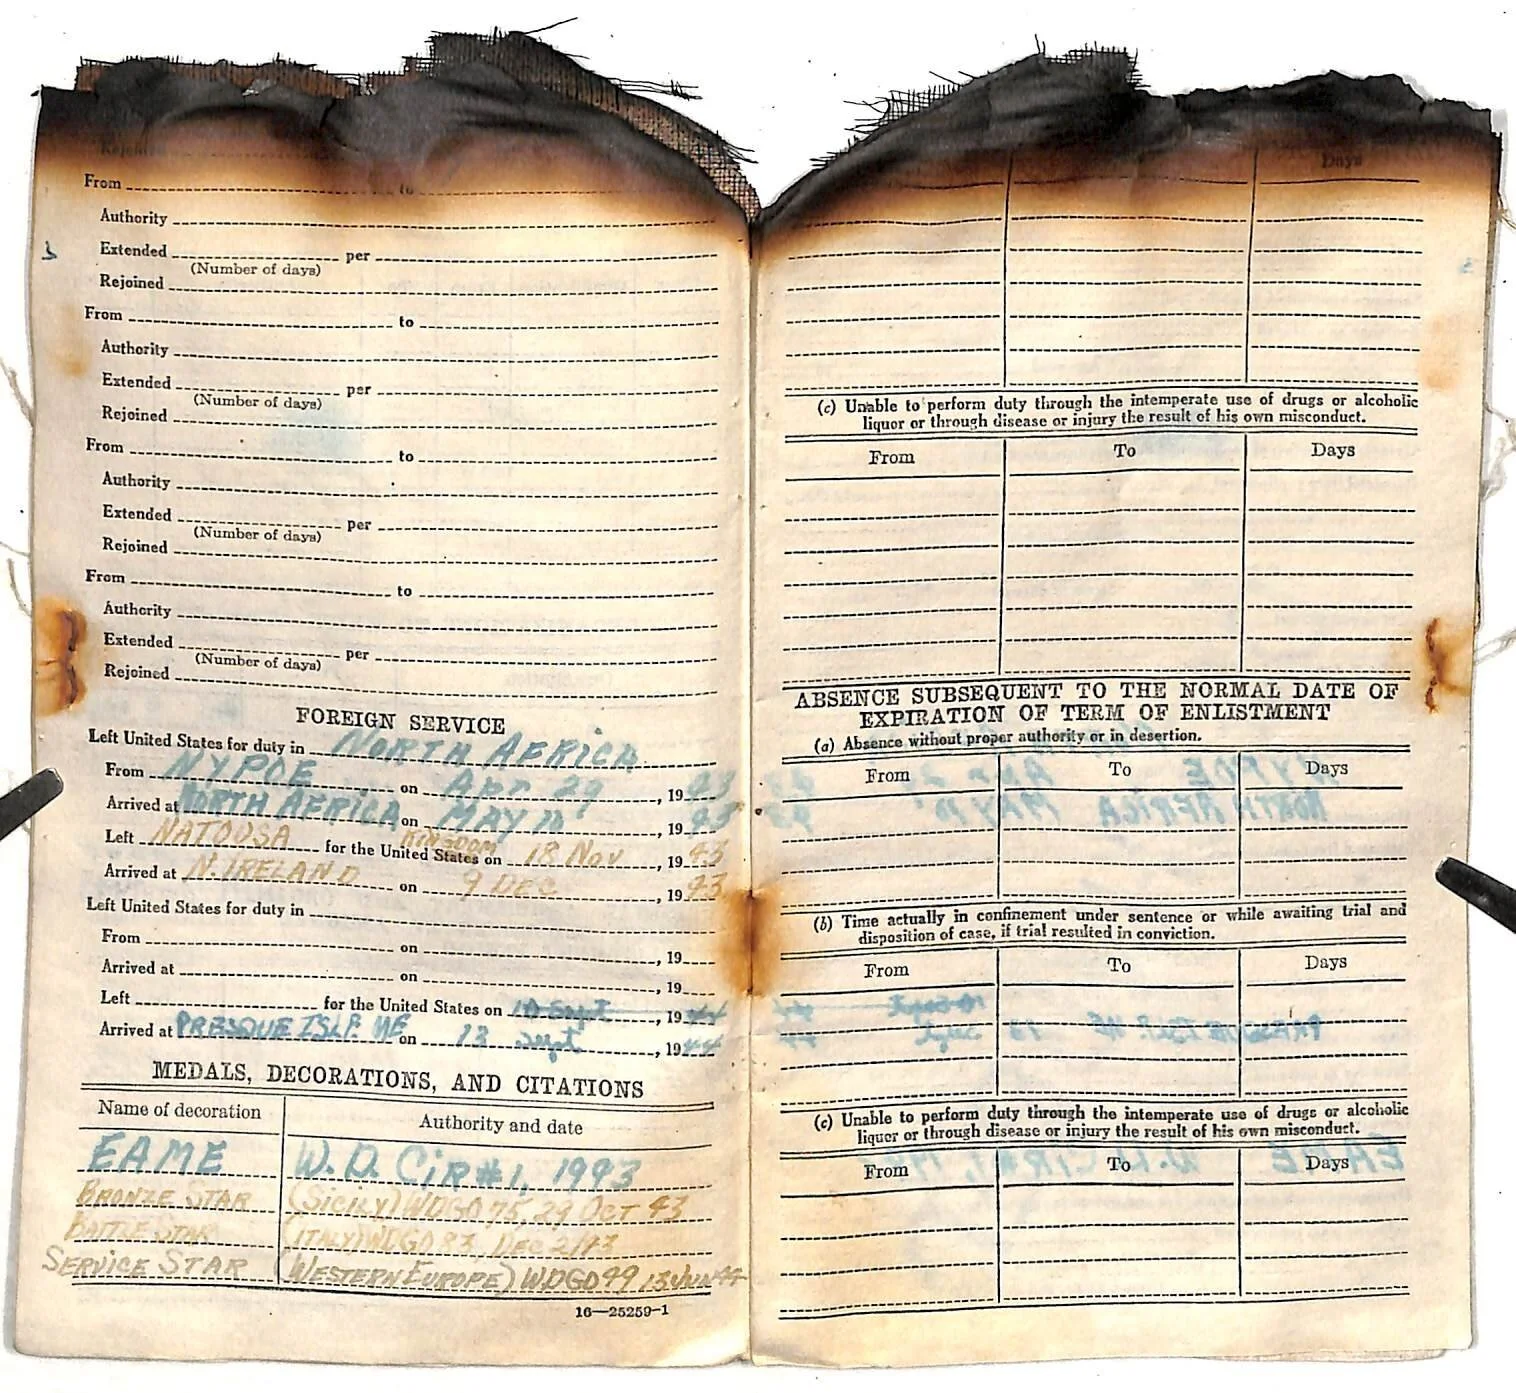 Rejoined
From to
Authority
Extended per
(Number of days)
Rejoined
From to
Authority
Extended per
(Number of days)
Rejoined
From to
Authority
Extended per
(Number of days)
Rejoined
From to
Authority
Extended per
(Number of days)
Rejoined
FOREIGN SERVICE
Left United States for duty in NORTH AFRICA
From NYPOE on Apr 29, 1943
Arrived at NORTH AFRICA on MAY 10, 1943
KINGDOM
Left NATOUSA for the United States on 18 Nov, 1943
Arrived at N. IRELAND on 9 DEC, 1943
Left United States for duty in
From on , 19
Arrived at on , 19
Left for the United States on 10 Sept, 1944
Arrived at PRESQUE ISLE. ME on 13 Sept, 1944
MEDALS, DECORATIONS, AND CITATIONS
Name of decoration Authority and date
EAME W.D. Cir #1, 1943
BRONZE STAR (Sicily) WDGO 75, 29 Oct 43
BATTLE STAR (ITALY) WDGO 83, DEC 2/43
SERVICE STAR (WESTERN EUROPE) WDGO 49 13 JUN 44
16—25259-1
Days
(c) Unable to perform duty through the intemperate use of drugs or alcoholic
liquor or through disease or injury the result of his own misconduct.
From To Days
ABSENCE SUBSEQUENT TO THE NORMAL DATE OF
EXPIRATION OF TERM OF ENLISTMENT
(a) Absence without proper authority or in desertion.
From To Days
(b) Time actually in confinement under sentence or while awaiting trial and
disposition of case, if trial resulted in conviction.
From To Days
(c) Unable to perform duty through the intemperate use of drugs or alcoholic
liquor or through disease or injury the result of his own misconduct.
From To Days